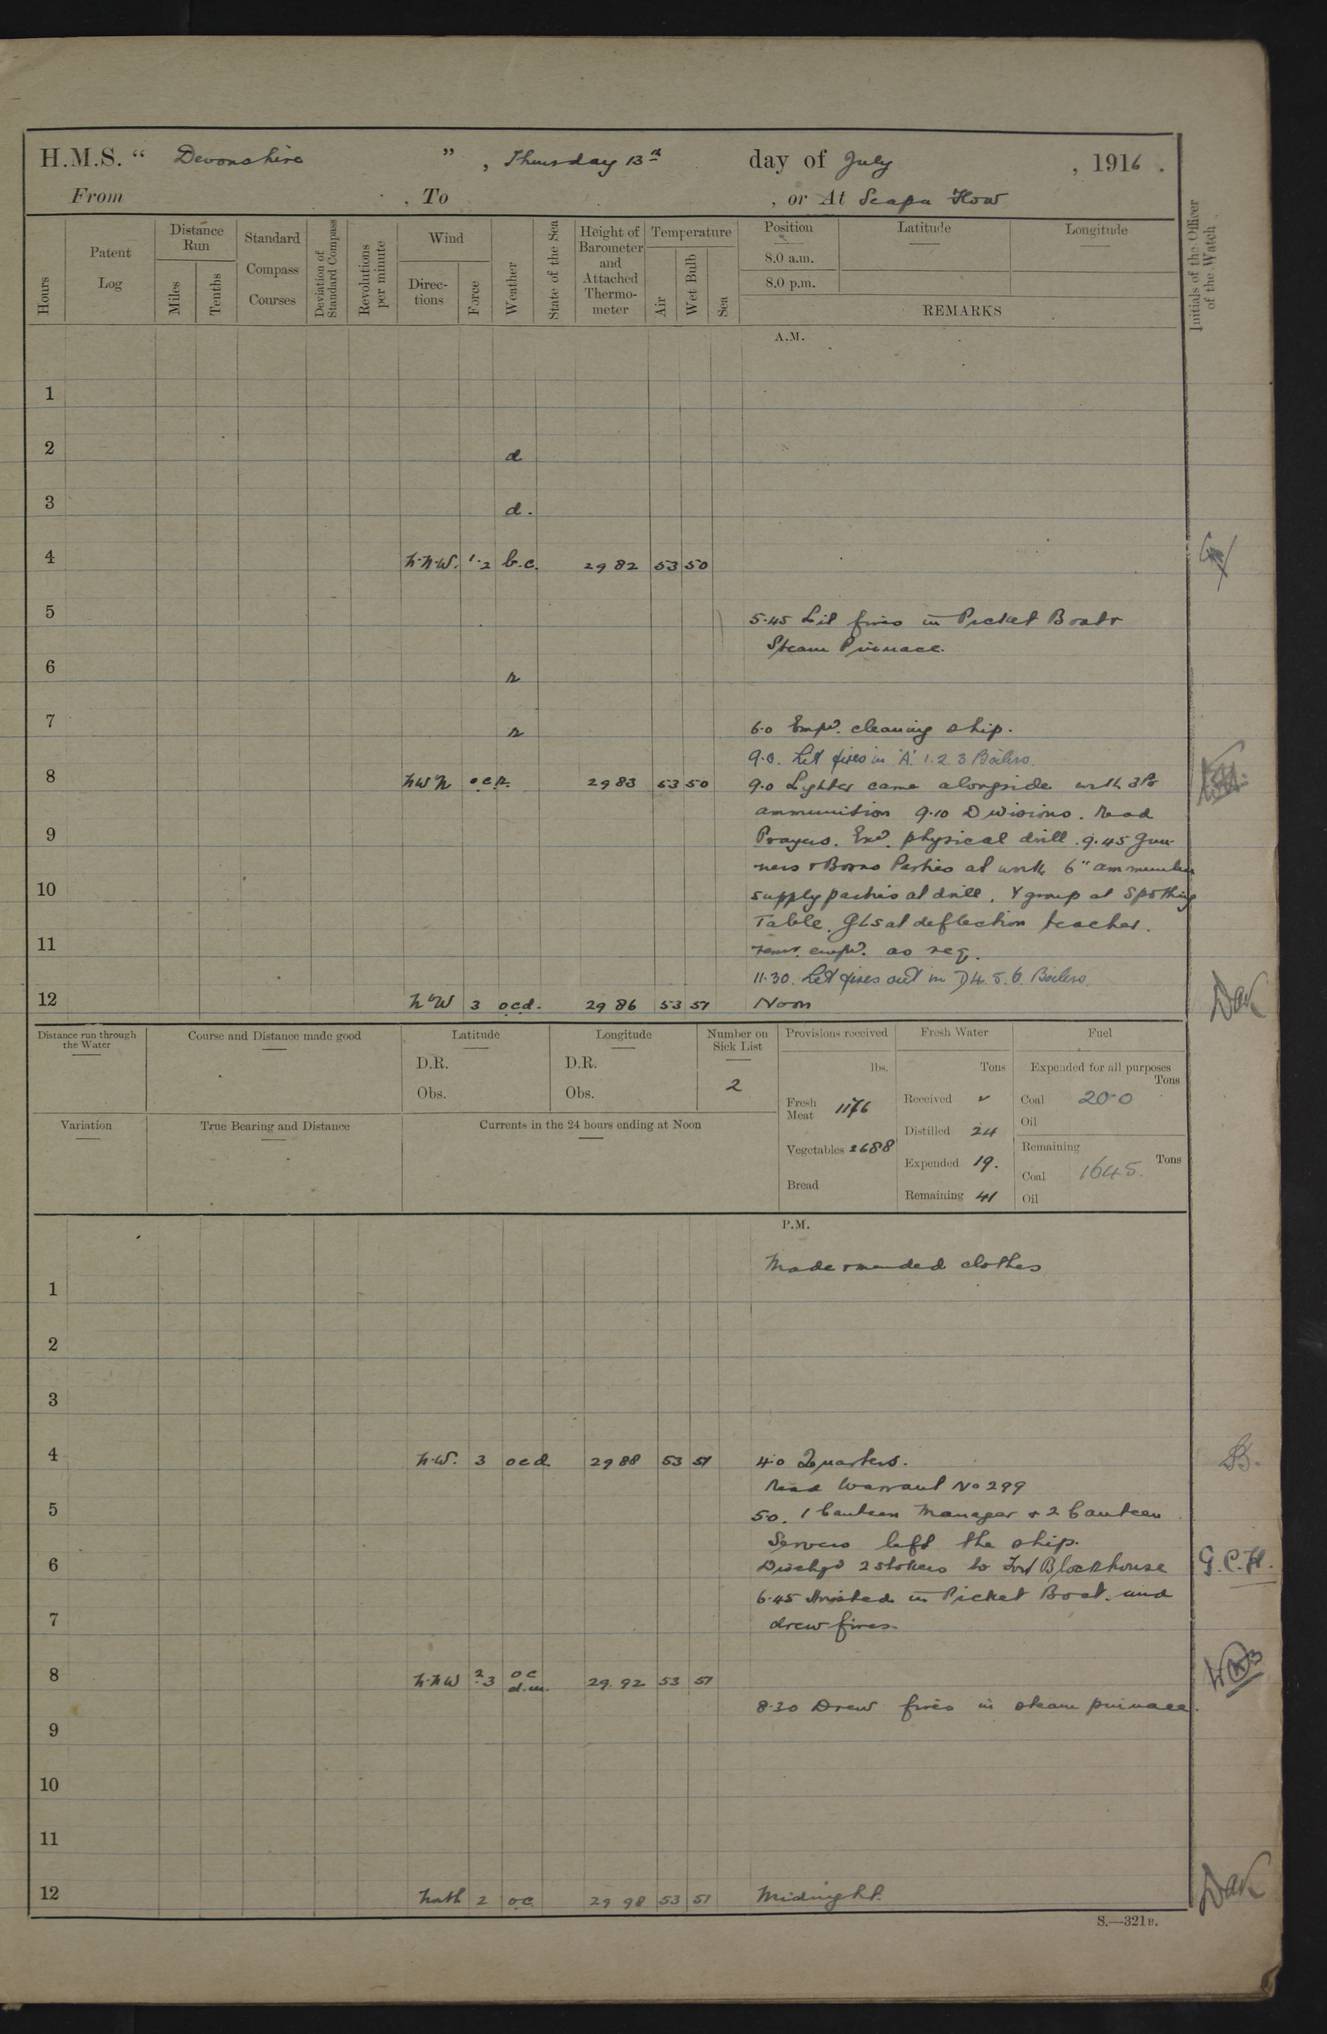 H.M.S. “ Devonshire ” , Thursday 13th day of July , 1916 .
From , To , or At Scapa Flow
Hours
Patent Log
Distance Run
Miles
Tenths
Standard Compass Courses
Deviation of Standard Compass
Revolutions per minute
Wind
Direc- tions
Force
Weather
State of the Sea
Height of Barometer and Attached Thermo- meter
Temperature
Air
Wet Bulb
Sea
Position
8.0 a.m.
8.0 p.m.
Latitude
Longitude
REMARKS
Initials of the Officer of the Watch
A.M.
1
2 d
3 d.
4 N.N.W. 1.2 b.c. 29 82 53 50
5 5.45 Lit fires in Picket Boat &
Steam Pinnace.
6 r
7 r 6.0 Emp'd. cleaning ship.
9.0. Let fires in 'A' 1. 2 3 Boilers.
8 NWN o.c.r. 29 83 53 50 9.0 Lighter came alongside with 3Pr
ammunition 9.10 Divisions. Read
9 Prayers. Exd. physical drill. 9.45 Gun-
ners & Bosns Parties at work 6" ammunition
10 supply parties at drill. Y group at Spotting
Table. GLs at deflection teacher.
11 Remr. emp'd. as req.
11.30. Let fires out in D 4. 5. 6. Boilers.
12 N'W 3 o.c.d. 29 86 53 51 Noon
Distance run through the Water
Course and Distance made good
Latitude
D.R.
Obs.
Longitude
D.R.
Obs.
Number on Sick List
2
Provisions received
lbs.
Fresh Meat 1176
Vegetables 2688
Bread
Fresh Water
Tons
Received
Distilled 24
Expended 19.
Remaining 41
Fuel
Expended for all purposes
Tons
Coal 20.0
Oil
Remaining
Tons
Coal 1645.
Oil
Variation
True Bearing and Distance
Currents in the 24 hours ending at Noon
P.M.
Made & mended clothes
1
2
3
4 N.W. 3 o c d 29 88 53 51 4.0 Quarters. B.
Read Warrant No 299
5 5.0. 1 Canteen Manager & 2 Canteen
Servers left the ship.
6 Dischgd 2 stokers to Fort Blockhouse G.C.H.
6.45 Hoisted in Picket Boat. and
7 drew fires.
8 N.N.W 2.3 o c d.m. 29. 92 53 51
8.30 Drew fires in steam pinnace.
9
10
11
12 North 2 o c 29 98 53 51 Midnight.
S.—321B.